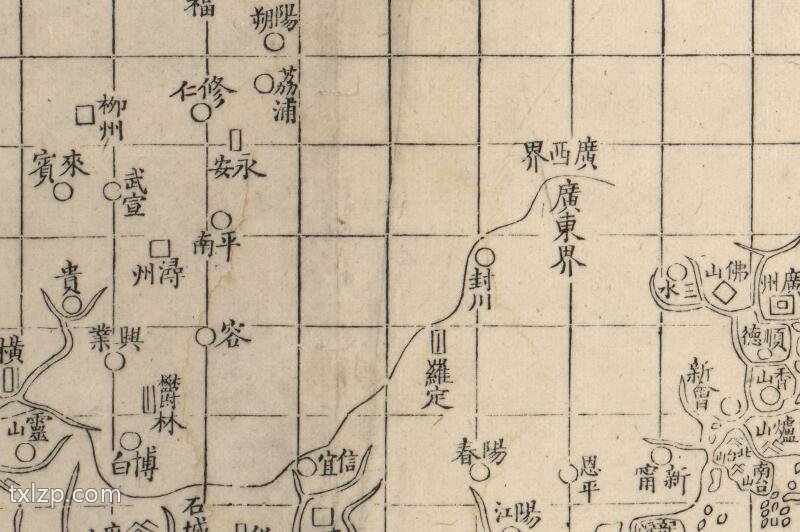 福
陽朔
荔浦
修仁
柳州
永安
來賓
武宣
平南
潯州
貴
興業
容
橫
鬱林
靈山
博白
石城
信宜
廣西界
廣東界
封川
羅定
陽春
恩平
陽江
新會
新甯
三水
佛山
廣州
順德
香山
爐山
北台山
南台
txlzp.com